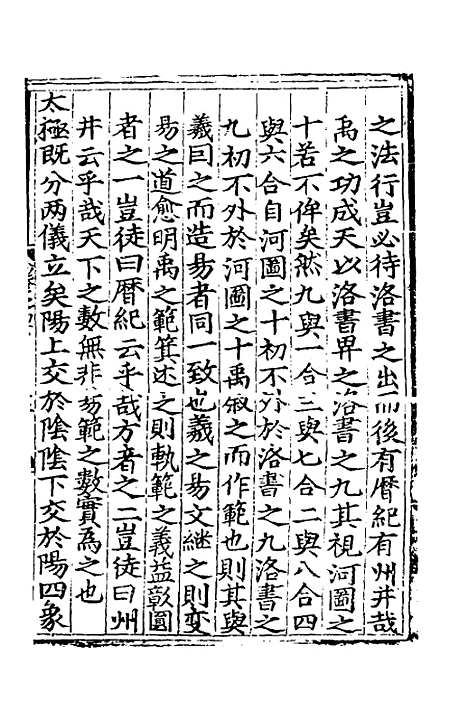 之法行豈必待洛書之出而後有曆紀有州井哉
禹之功成天以洛書畀之洛書之九其視河圖之
十若不侔矣然九與一合三與七合二與八合四
與六合自河圖之十初不外於洛書之九洛書之
九初不外於河圖之十禹敘之而作範也則其與
羲曰之而造易者同一致也羲之易文継之則变
易之道愈明禹之範箕述之則軌範之義益彰圓
者之一豈徒曰曆紀云乎哉方者之二豈徒曰州
井云乎哉天下之數無非易範之數實為之也
太極既分两儀立矣陽上交於陰陰下交於陽四象